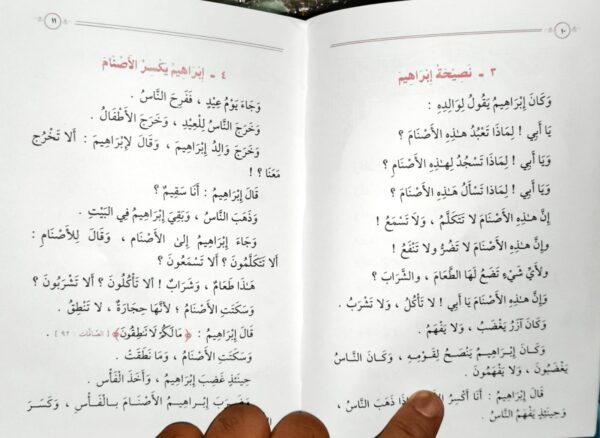 ١٠
٣ - نَصِيْحَةُ إِبْرَاهِيمَ
وَكَانَ إِبْرَاهِيمُ يَقُولُ لِوَالِدِهِ :
يَا أَبِي ! لِمَاذَا تَعْبُدُ هٰذِهِ الأَصْنَامَ ؟
وَيَا أَبِي ! لِمَاذَا تَسْجُدُ لِهٰذِهِ الأَصْنَامِ ؟
وَيَا أَبِي ! لِمَاذَا تَسْأَلُ هٰذِهِ الأَصْنَامَ ؟
إِنَّ هٰذِهِ الأَصْنَامَ لاَ تَتَكَلَّمُ ، وَلاَ تَسْمَعُ !
وإِنَّ هٰذِهِ الأَصْنَامَ لاَ تَضُرُّ ولا تَنْفَعُ !
ولأَيِّ شَيْءٍ تَضَعُ لَهَا الطَّعَامَ ، والشَّرَابَ ؟
وَإِنَّ هٰذِهِ الأَصْنَامَ يَا أَبِي ! لا تَأْكُلُ ، وَلاَ تَشْرَبُ .
وَكَانَ آزَرُ يَغْضَبُ ، وَلاَ يَفْهَمُ .
وَكَانَ إِبْـرَاهِـيمُ يَنْصَحُ لِقَوْمِـهِ ، وَكَـانَ النَّاسُ
يَغْضَبُونَ ، وَلاَ يَفْهَمُونَ .
قَالَ إِبْرَاهِيمُ : أَنَا أَكْسِرُ إِذَا ذَهَبَ النَّاسُ ،
وَحِينَئِذٍ يَفْهَمُ النَّاسُ .
١١
٤ - إِبْرَاهِيمُ يَكْسِرُ الأَصْنَامَ
وَجَاءَ يَوْمُ عِيْدٍ ، فَفَرِحَ النَّاسُ .
وَخَرَجَ النَّاسُ لِلْعِيْدِ ، وَخَرَجَ الأَطْفَالُ .
وَخَرَجَ وَالِدُ إِبْرَاهِيمَ ، وَقَالَ لإِبْرَاهِيمَ : أَلا تَخْرُج
مَعَنَا ؟ !
قَالَ إِبْرَاهِيمُ : أَنَا سَقِيمٌ ؟
وَذَهَبَ النَّاسُ ، وَبَقِيَ إِبْرَاهِيمُ فِي البَيْتِ .
وَجَاءَ إِبْرَاهِيمُ إِلىٰ الأَصْنَامِ ، وَقَالَ لِلأَصْنَامِ :
أَلا تَتَكَلَّمُونَ ؟ أَلا تَسْمَعُونَ ؟
هٰذَا طَعَامٌ ، وَشَرَابٌ ! أَلا تَأْكُلُونَ ؟ أَلا تَشْرَبُونَ ؟
وَسَكَتَتِ الأَصْنَامُ ؛ لأَنَّهَا حِجَارَةٌ ، لا تَنْطِقُ .
قَالَ إِبْرَاهِيمُ : ﴿ مَا لَكُمْ لَا تَنطِقُونَ ﴾ [ الصافات : ٩٢ ] .
وَسَكَتَتِ الأَصْنَامُ ، وَمَا نَطَقَتْ .
حِينَئِذٍ غَضِبَ إِبْرَاهِيمُ ، وَأَخَذَ الْفَأْسَ .
إِبـرَاهِيمُ الأَصْنَامَ بـالْفَـأْسِ ، وَكَسَرَ